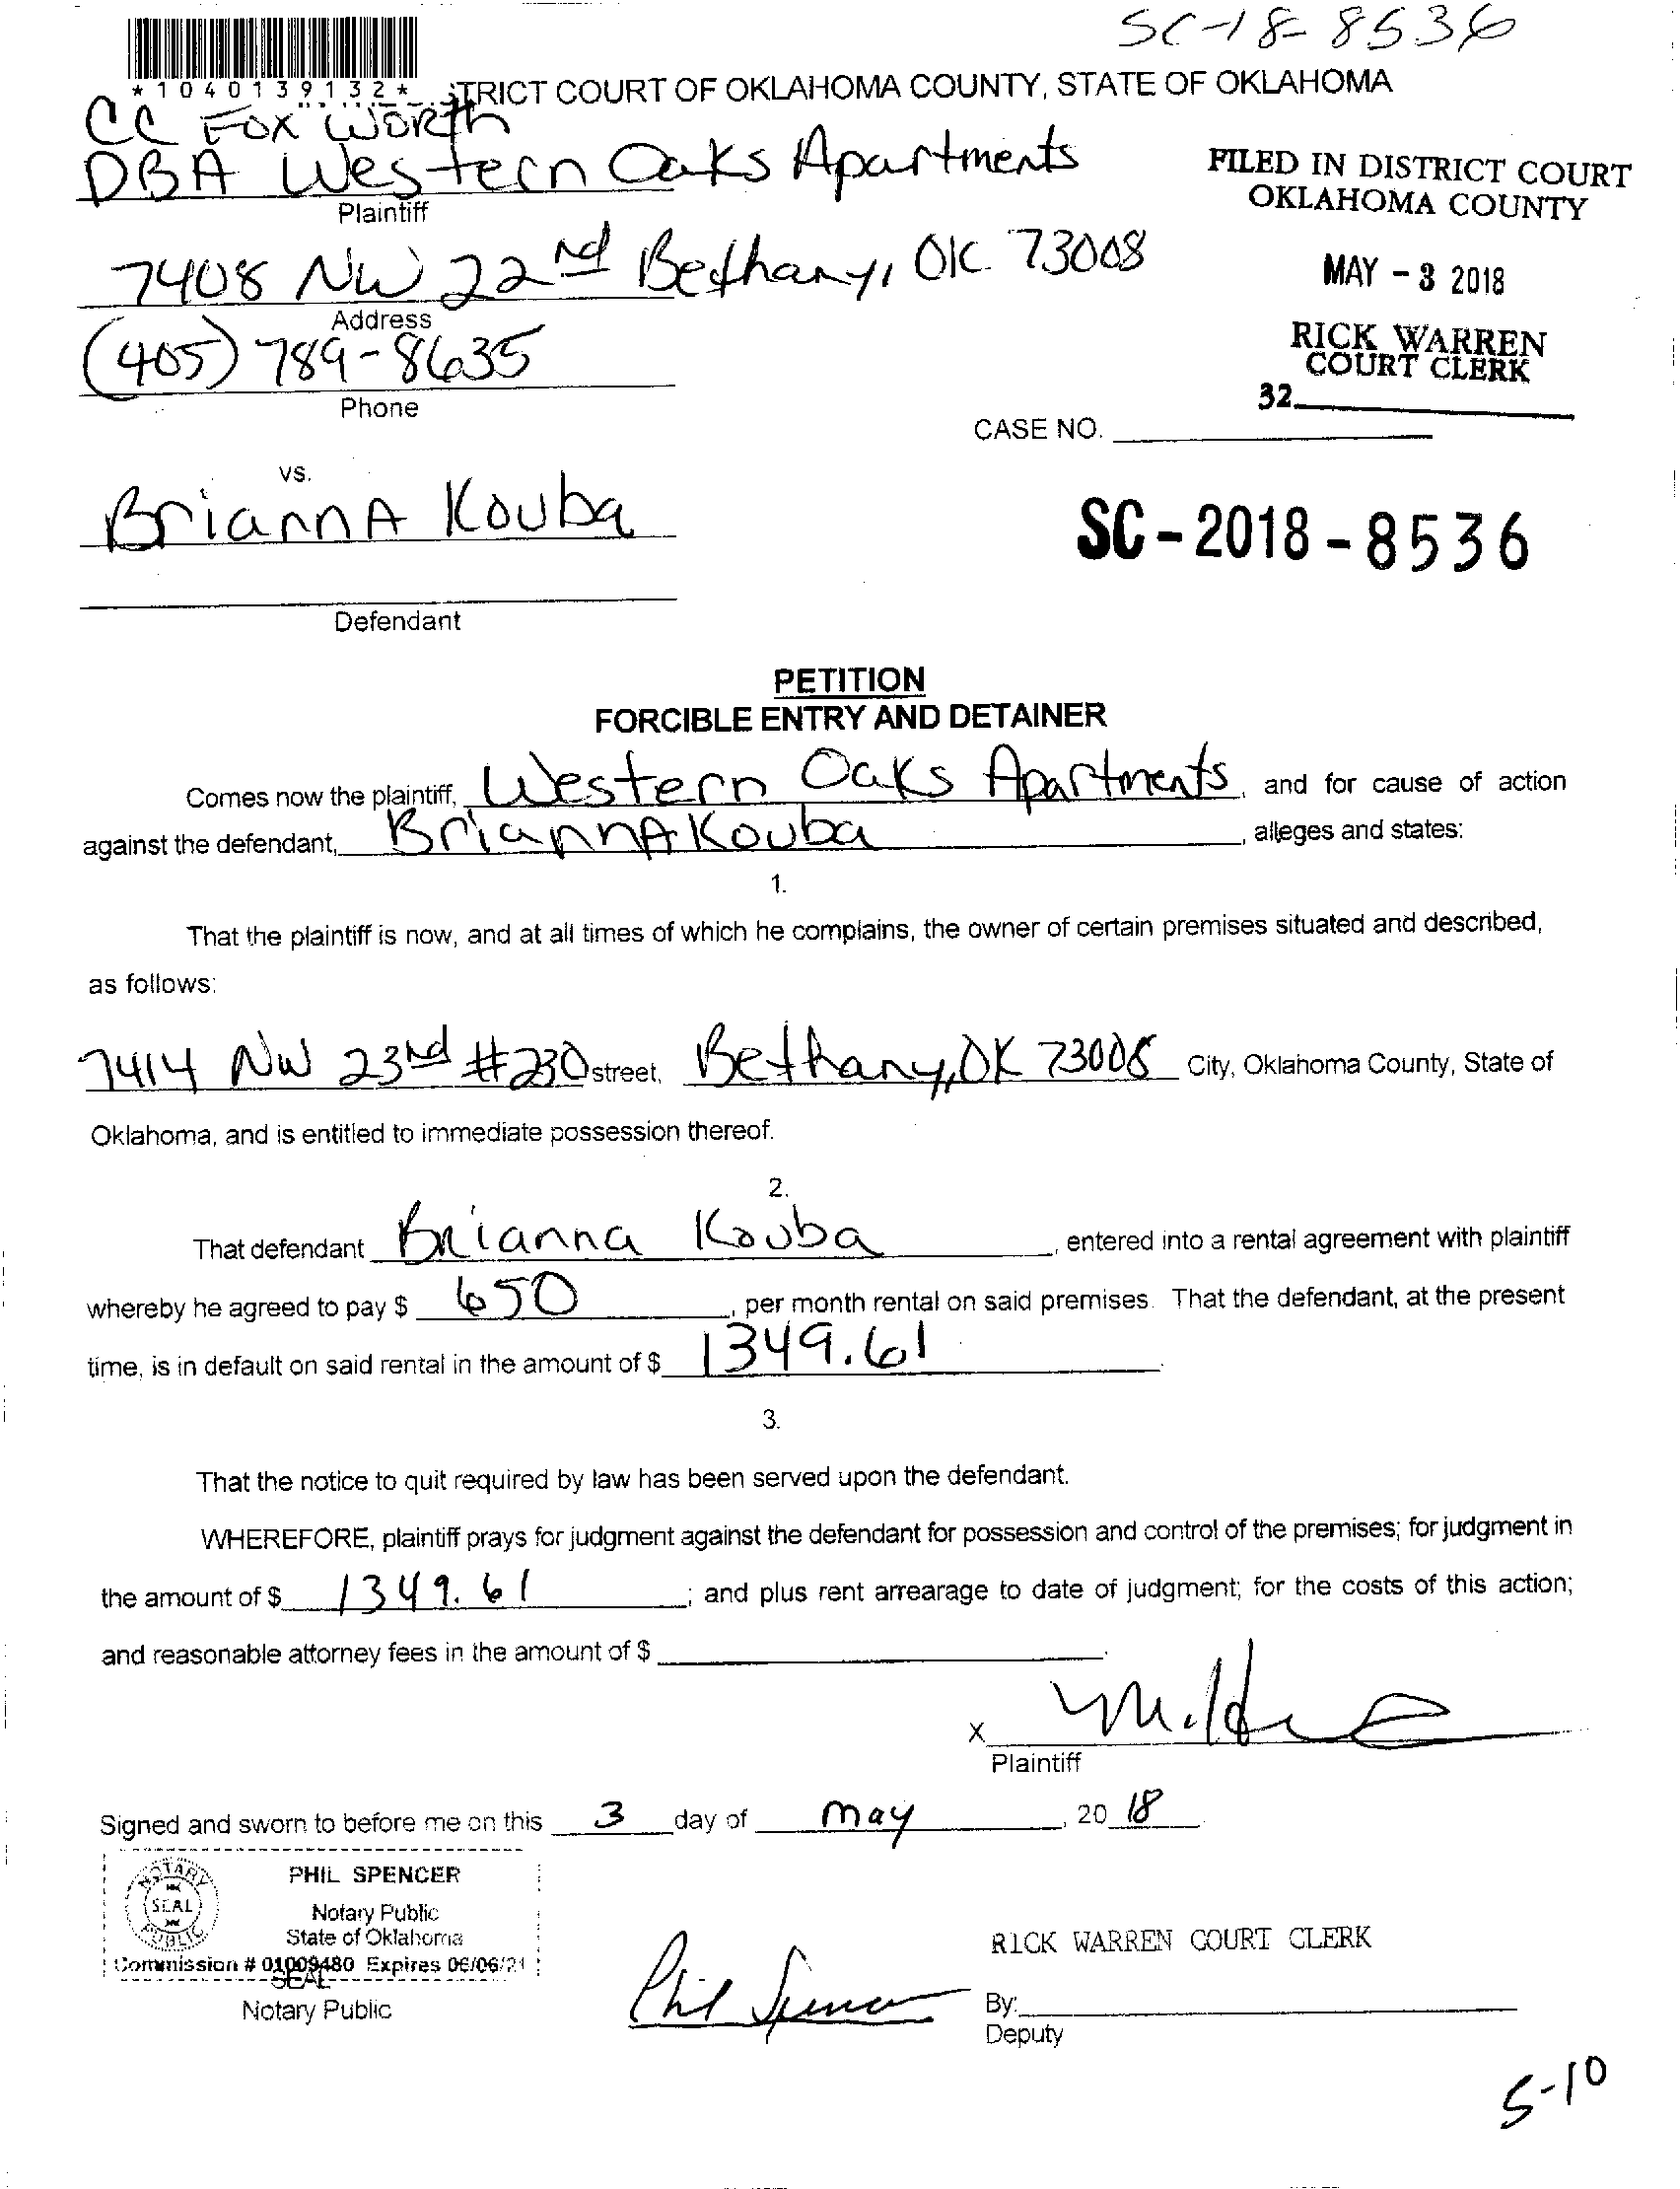 SC-18-8536
*1040139132*
TRICT COURT OF OKLAHOMA COUNTY, STATE OF OKLAHOMA
CC Fox Worth
DBA Western Oaks Apartments
Plaintiff
FILED IN DISTRICT COURT
OKLAHOMA COUNTY
7408 NW 22nd Bethany, OK 73008
Address
MAY - 3 2018
(405) 789-8635
Phone
RICK WARREN
COURT CLERK
32
CASE NO.
vs.
BriannA Kouba
SC-2018-8536
Defendant
PETITION
FORCIBLE ENTRY AND DETAINER
Comes now the plaintiff, Western Oaks Apartments, and for cause of action
against the defendant, BriannA Kouba, alleges and states:
1.
That the plaintiff is now, and at all times of which he complains, the owner of certain premises situated and described,
as follows:
7414 NW 23rd #230 street, Bethany, OK 73008 City, Oklahoma County, State of
Oklahoma, and is entitled to immediate possession thereof.
2.
That defendant Brianna Kouba, entered into a rental agreement with plaintiff
whereby he agreed to pay $ 650, per month rental on said premises. That the defendant, at the present
time, is in default on said rental in the amount of $ 1349.61.
3.
That the notice to quit required by law has been served upon the defendant.
WHEREFORE, plaintiff prays for judgment against the defendant for possession and control of the premises; for judgment in
the amount of $ 1349.61; and plus rent arrearage to date of judgment; for the costs of this action;
and reasonable attorney fees in the amount of $.
X
Plaintiff
Signed and sworn to before me on this 3 day of may, 20 18.
NOTARY PUBLIC SEAL
PHIL SPENCER
Notary Public
State of Oklahoma
Commission # 01009480 Expires 06/06/21
SEAL
Notary Public
Phil Spencer
RICK WARREN COURT CLERK
By:
Deputy
5-10